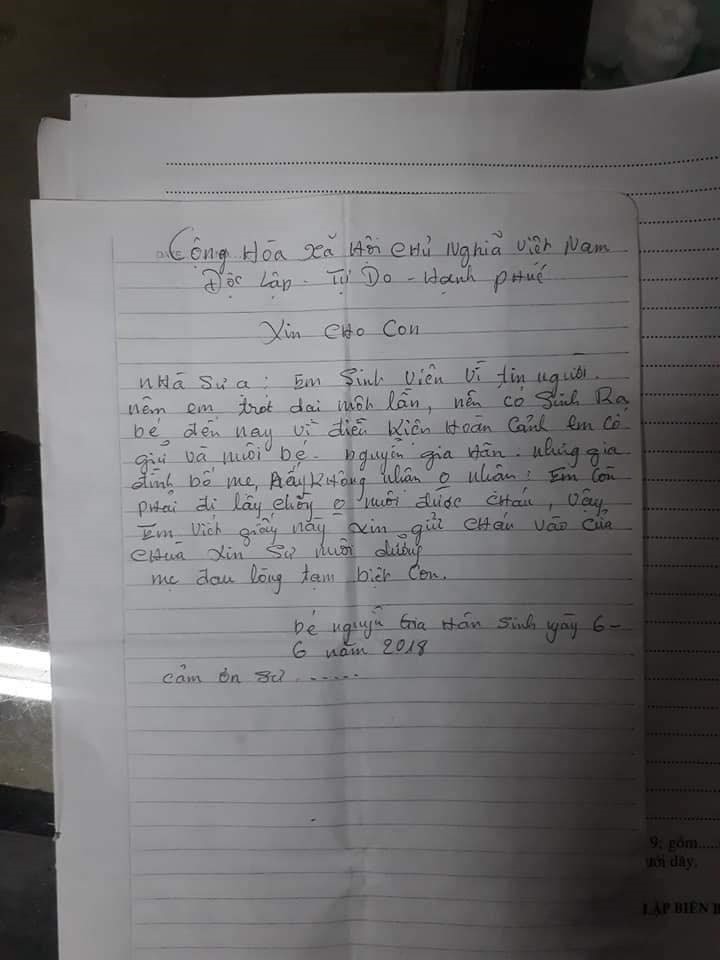 Cộng Hòa Xã Hội Chủ Nghĩa Việt Nam
Độc Lập - Tự Do - Hạnh Phúc
Xin Cho Con
nhà Sư a: Em Sinh Viên Vì tin người.
nêm em trót dai môt lần, nên có Sinh Ra
bé đến nay vì điều Kiên Hoàn Cảnh em Có
giữ và nuôi bé - nguyễn gia Hân. nhưng gia
đình bố mẹ, Ấy Không nhân o nhân: Em Còn
phải đi lấy chồng o nuôi được cháu, Vây
Em Vích giấy này xin gửi cháu vào cửa
chua Xin Sư nuôi dưỡng
mẹ đau lòng tạm biệt Con.
bé nguyễn Gia Hân Sinh ngày 6-
6 năm 2018
cảm ơn sư ......
9; gồm....
ưới đây,
LẬP BIÊN B